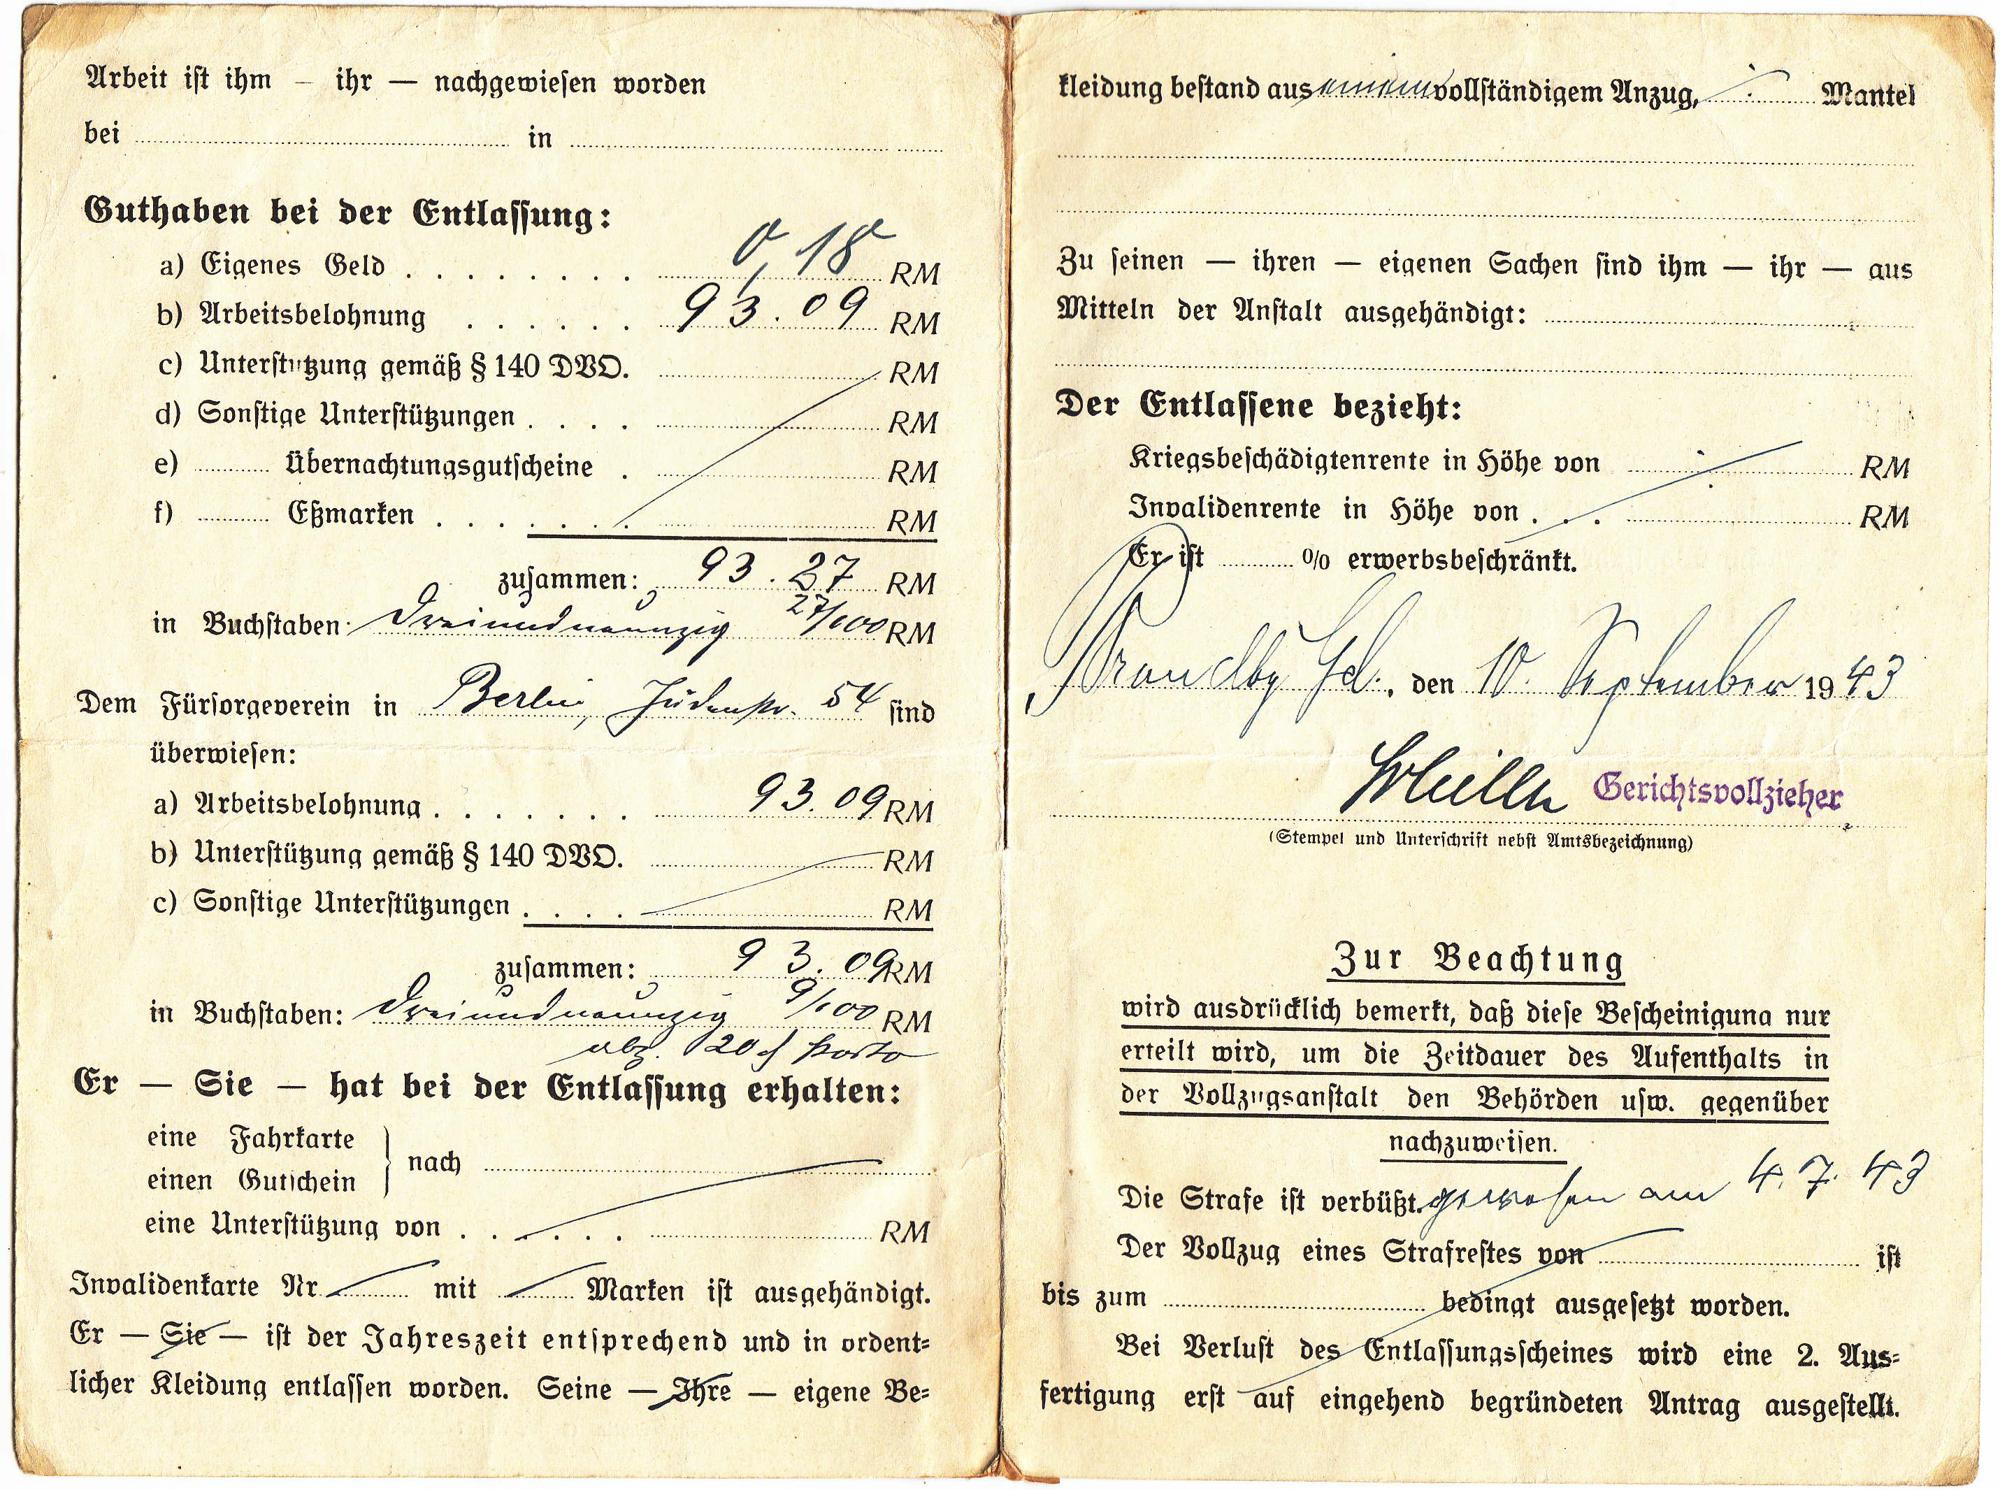 Arbeit ist ihm – ihr — nachgewiesen worden
bei in
Guthaben bei der Entlassung:
a) Eigenes Geld 0,18 RM
b) Arbeitsbelohnung 93.09 RM
c) Unterstützung gemäß § 140 DVO. RM
d) Sonstige Unterstützungen RM
e) Übernachtungsgutscheine RM
f) Eßmarken RM
zusammen: 93.27 RM
in Buchstaben: Dreiundneunzig 27/100 RM
Dem Fürsorgeverein in Berlin, Jüdenstr. 54 sind
überwiesen:
a) Arbeitsbelohnung 93.09 RM
b) Unterstützung gemäß § 140 DVO. RM
c) Sonstige Unterstützungen RM
zusammen: 93.09 RM
in Buchstaben: Dreiundneunzig 9/100 RM
abz. 20 ₰ Porto
Er — Sie — hat bei der Entlassung erhalten:
eine Fahrkarte
einen Gutschein } nach
eine Unterstützung von RM
Invalidenkarte Nr. mit Marken ist ausgehändigt.
Er — Sie — ist der Jahreszeit entsprechend und in ordent-
licher Kleidung entlassen worden. Seine — Ihre — eigene Be-
kleidung bestand aus einem vollständigem Anzug, Mantel
Zu seinen — ihren — eigenen Sachen sind ihm — ihr — aus
Mitteln der Anstalt ausgehändigt:
Der Entlassene bezieht:
Kriegsbeschädigtenrente in Höhe von RM
Invalidenrente in Höhe von RM
Er ist % erwerbsbeschränkt.
Brandbg Gd., den 10. September 1943
Gerichtsvollzieher
(Stempel und Unterschrift nebst Amtsbezeichnung)
Zur Beachtung
wird ausdrücklich bemerkt, daß diese Bescheinigung nur
erteilt wird, um die Zeitdauer des Aufenthalts in
der Vollzugsanstalt den Behörden usw. gegenüber
nachzuweisen.
Die Strafe ist verbüßt. gewesen am 4.7.43
Der Vollzug eines Strafrestes von ist
bis zum bedingt ausgesetzt worden.
Bei Verlust des Entlassungsscheines wird eine 2. Aus-
fertigung erst auf eingehend begründeten Antrag ausgestellt.